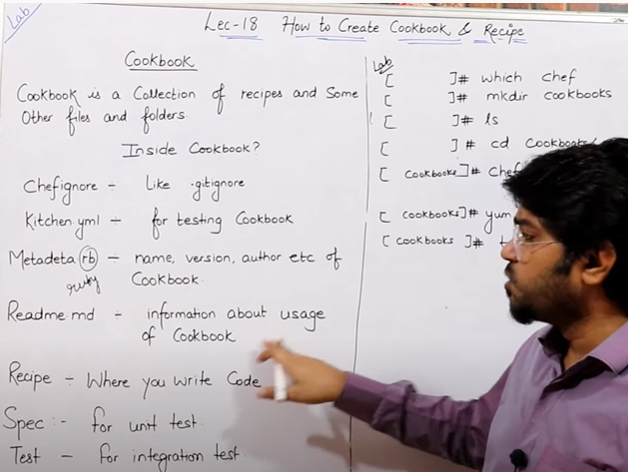 Lab
Lec-18 How to Create Cookbook & Recipe
Cookbook
Cookbook is a Collection of recipes and Some
Other files and folders
Inside Cookbook?
Chefignore - Like .gitignore
Kitchen.yml - for testing Cookbook
Metadeta rb - name, version, author etc of
ruby Cookbook.
Readme md - information about usage
of Cookbook
Recipe - Where you write Code
Spec :- for unit test.
Test - for integration test
Lab
[ ]# which chef
[ ]# mkdir cookbooks
[ ]# ls
[ ]# cd cookbooks/
[ cookbooks]# chef
[ cookbooks]# yum
[ cookbooks ]# t